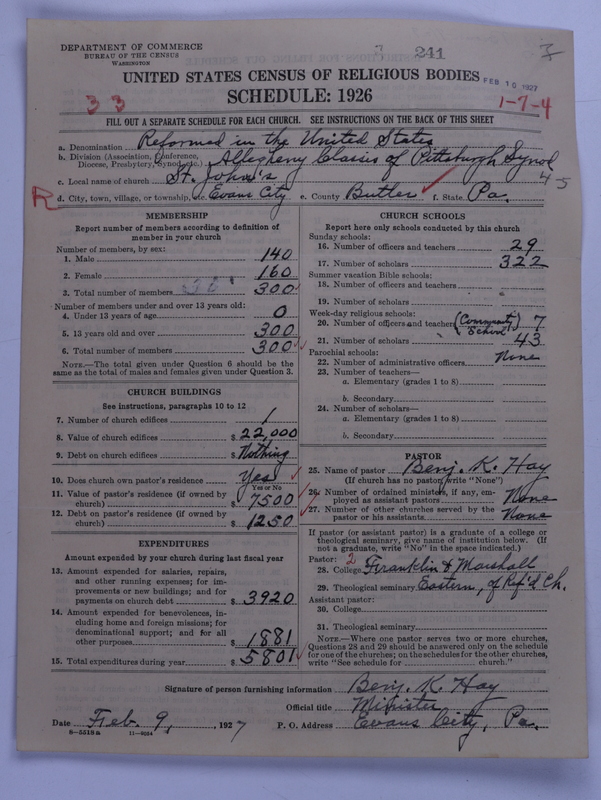 DEPARTMENT OF COMMERCE
BUREAU OF THE CENSUS
WASHINGTON
7 241
FEB 10 1927
UNITED STATES CENSUS OF RELIGIOUS BODIES
SCHEDULE: 1926
33
1-7-4
FILL OUT A SEPARATE SCHEDULE FOR EACH CHURCH. SEE INSTRUCTIONS ON THE BACK OF THIS SHEET
a. Denomination Reformed in the United States
b. Division (Association, Conference, Diocese, Presbytery, Synod, etc.) Allegheny Classis of Pittsburgh Synod
c. Local name of church St. John's
45
R
d. City, town, village, or township, etc. Evans City e. County Butler f. State Pa.
MEMBERSHIP
Report number of members according to definition of
member in your church
Number of members, by sex:
1. Male 140
2. Female 160
3. Total number of members 300
Number of members under and over 13 years old:
4. Under 13 years of age 0
5. 13 years old and over 300
6. Total number of members 300
NOTE.—The total given under Question 6 should be the
same as the total of males and females given under Question 3.
CHURCH BUILDINGS
See instructions, paragraphs 10 to 12
7. Number of church edifices 1
8. Value of church edifices $ 22,000
9. Debt on church edifices $ Nothing
10. Does church own pastor's residence Yes
Yes or No
11. Value of pastor's residence (if owned by
church) $ 7500
12. Debt on pastor's residence (if owned by
church) $ 1250
EXPENDITURES
Amount expended by your church during last fiscal year
13. Amount expended for salaries, repairs,
and other running expenses; for im-
provements or new buildings; and for
payments on church debt $ 3920
14. Amount expended for benevolences, in-
cluding home and foreign missions; for
denominational support; and for all
other purposes $ 1881
15. Total expenditures during year $ 5801
CHURCH SCHOOLS
Report here only schools conducted by this church
Sunday schools:
16. Number of officers and teachers 29
17. Number of scholars 322
Summer vacation Bible schools:
18. Number of officers and teachers
19. Number of scholars
Week-day religious schools:
20. Number of officers and teachers (Community School) 7
21. Number of scholars 43
Parochial schools:
22. Number of administrative officers None
23. Number of teachers—
a. Elementary (grades 1 to 8)
b. Secondary
24. Number of scholars—
a. Elementary (grades 1 to 8)
b. Secondary
PASTOR
25. Name of pastor Benj. K. Hay
(If church has no pastor, write "None")
26. Number of ordained ministers, if any, em-
ployed as assistant pastors None
27. Number of other churches served by the
pastor or his assistants None
If pastor (or assistant pastor) is a graduate of a college or
theological seminary, give name of institution below. (If
not a graduate, write "No" in the space indicated.)
Pastor: 2
28. College Franklin & Marshall
29. Theological seminary Eastern, of Ref'd Ch.
Assistant pastor:
30. College
31. Theological seminary
NOTE.—Where one pastor serves two or more churches,
Questions 28 and 29 should be answered only on the schedule
for one of the churches; on the schedules for the other churches,
write "See schedule for church."
Signature of person furnishing information Benj. K. Hay
Official title Minister
Date Feb. 9, , 1927 P. O. Address Evans City, Pa.
8-5518a 11-9034